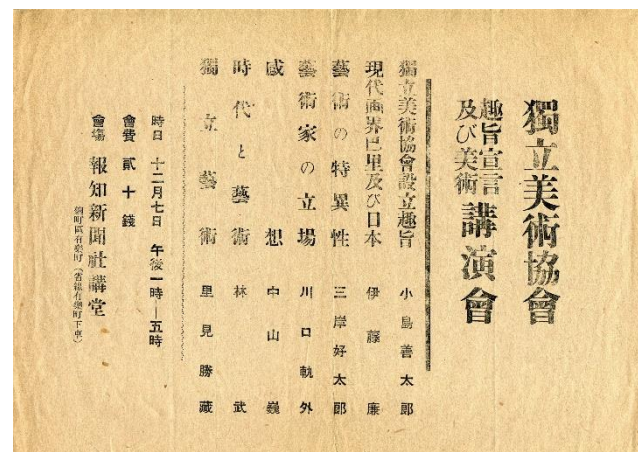 獨立美術協會
趣旨宣言
及び美術
講演會
獨立美術協會設立趣旨 小島善太郎
現代画界巴里及び日本 伊藤廉
藝術の特異性 三岸好太郎
藝術家の立場 川口軌外
感想 中山巍
時代と藝術 林武
獨立藝術 里見勝蔵
時日 十二月七日 午後一時—五時
會費 貳十錢
會場 報知新聞社講堂
麹町區有樂町(省線有樂町下車)